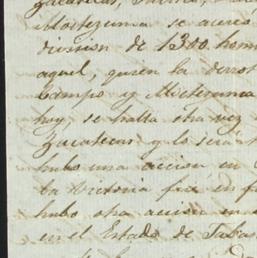 Zacatecas,
Moctezuma se acercó
division de 1300 hom
aquel, quien la derrot
Campo y Moctezuma
hoy se halla otra vez
Zacatecas y lo será
hubo una accion en
la Victoria fué en f
hubo otra accion en
en el Estado de Tabas